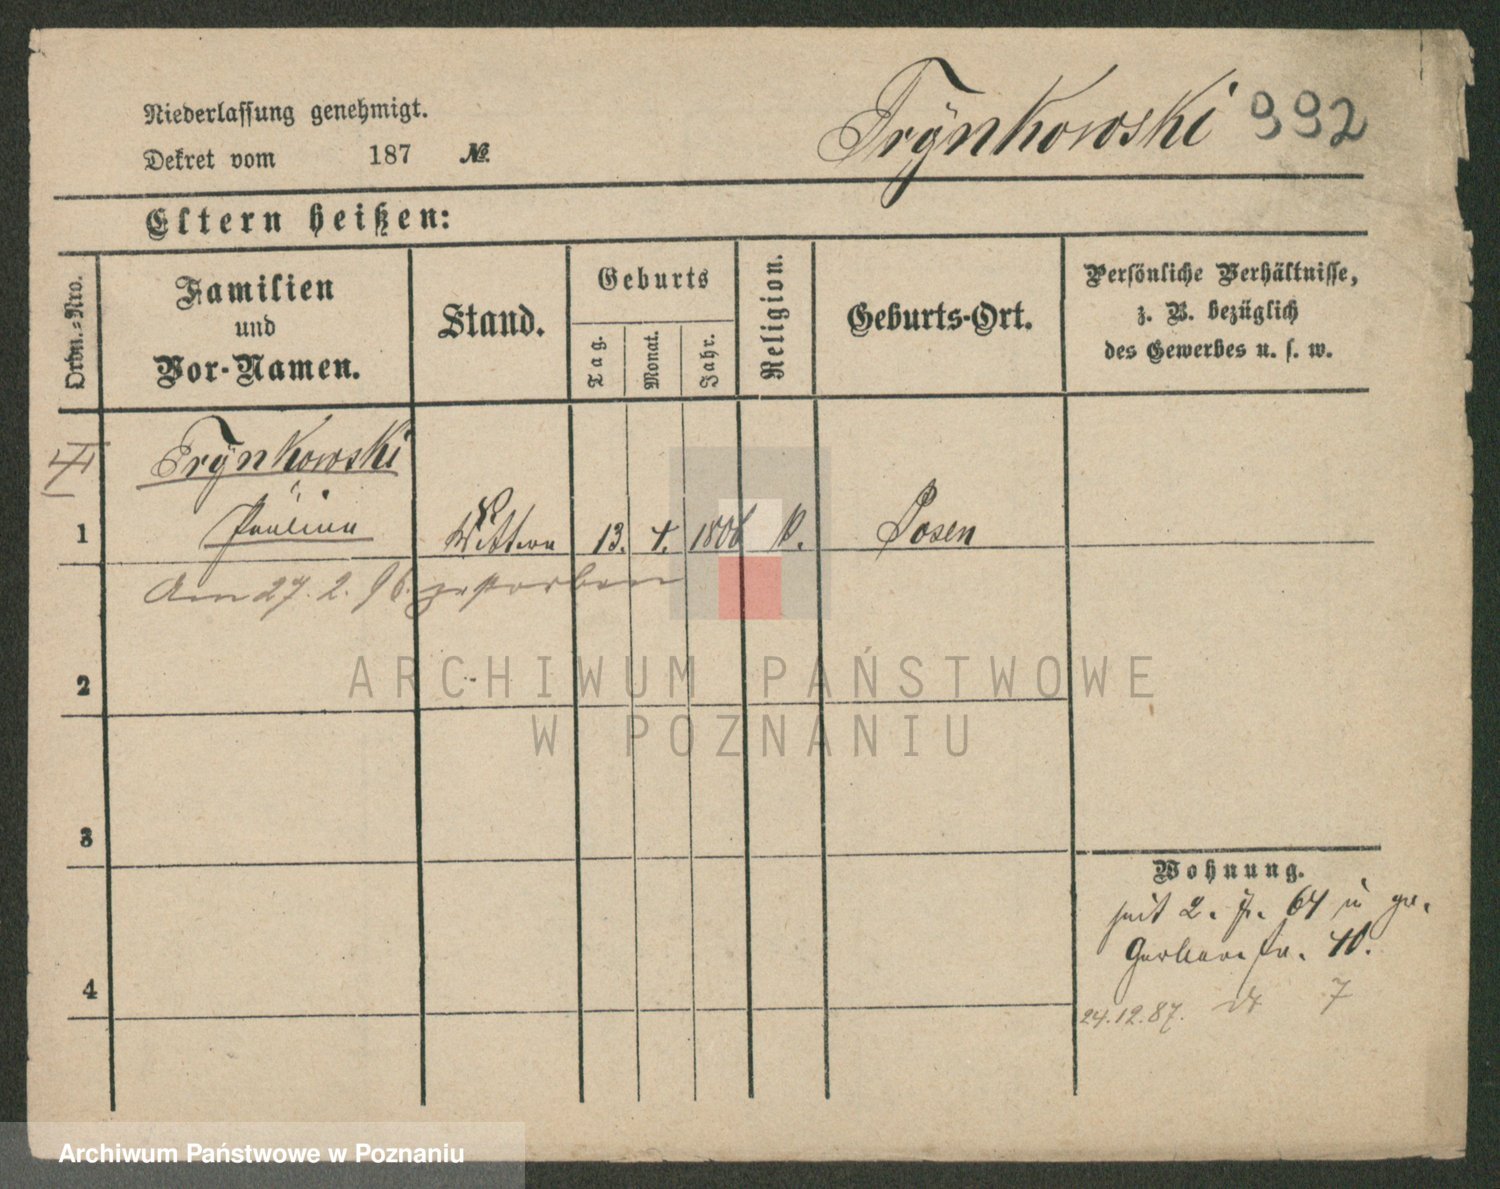 Niederlassung genehmigt.
Dekret vom 187 №
Trÿnkowski 992
Eltern heißen:
Ordn.-Nro.
Familien
und
Vor-Namen.
Stand.
Geburts
Tag.
Monat.
Jahr.
Religion.
Geburts-Ort.
Persönliche Verhältnisse,
z. B. bezüglich
des Gewerbes u. s. w.
Trÿnkowski
1 Paulina Wittwe 13. 4. 1806 k. Posen
Am 27. 2. 96. gestorben
2
3
4
Wohnung.
seit 2. 64 in gr.
Gerberstr. 40.
24.12.87. 7
ARCHIWUM PAŃSTWOWE
W POZNANIU
Archiwum Państwowe w Poznaniu